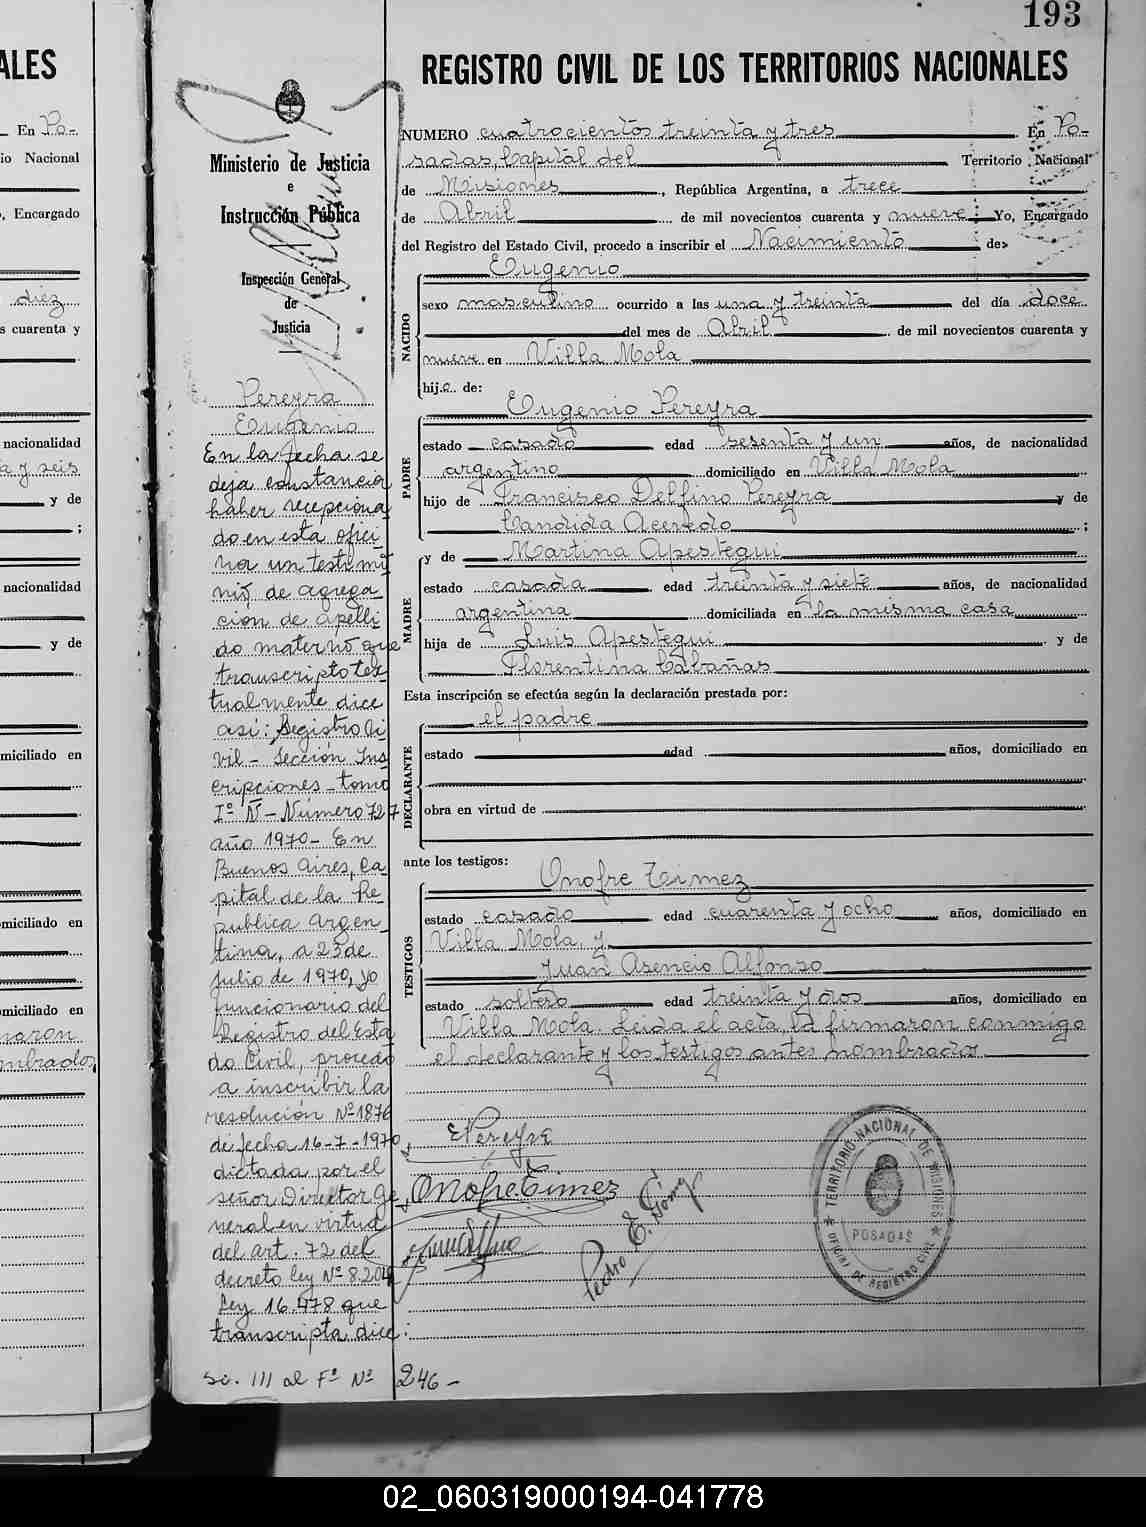 193
ALES
REGISTRO CIVIL DE LOS TERRITORIOS NACIONALES
En Po-
io Nacional
, Encargado
diez
s cuarenta y
nacionalidad
a y seis
y de
;
nacionalidad
y de
miciliado en
omiciliado en
omiciliado en
maron
mbrados,
Ministerio de Justicia
e
Instrucción Pública
Inspección General
de
Justicia
NUMERO cuatrocientos treinta y tres En Po-
sadas, Capital del Territorio Nacional
de Misiones, República Argentina, a trece
de Abril de mil novecientos cuarenta y nueve; Yo, Encargado
del Registro del Estado Civil, procedo a inscribir el Nacimiento de
NACIDO
Eugenio
sexo masculino ocurrido a las una y treinta del día doce
del mes de Abril de mil novecientos cuarenta y
nueve en Villa Mola
hijo de:
PADRE
Eugenio Pereyra
estado casado edad sesenta y un años, de nacionalidad
argentino domiciliado en Villa Mola
hijo de Francisco Delfino Pereyra y de
Candida Acevedo ;
MADRE
y de Martina Apestegui
estado casada edad treinta y siete años, de nacionalidad
argentina domiciliada en la misma casa
hija de Luis Apestegui y de
Florentina Cabañas
Esta inscripción se efectúa según la declaración prestada por:
DECLARANTE
el padre
estado edad años, domiciliado en
obra en virtud de
ante los testigos:
TESTIGOS
Onofre Timez
estado casado edad cuarenta y ocho años, domiciliado en
Villa Mola, y
Juan Asencio Alfonso
estado soltero edad treinta y dos años, domiciliado en
Villa Mola. Leida el acta, la firmaron conmigo
el declarante y los testigos antes nombrados.
Pereyra
Eugenio
En la fecha se
deja constancia
haber recepciona
do en esta ofici
na un testimo
nio de agrega
cion de apelli
do materno que
transcripto tex
tualmente dice
asi: Registro Ci
vil - Sección Ins
cripciones - tomo
1º N - Número 727
año 1970 - En
Buenos Aires, Ca
pital de la Re
publica Argen
tina, a 23 de
julio de 1970, yo
funcionario del
Registro del Esta
do Civil, procedo
a inscribir la
resolución Nº 1876
de fecha 16-7-1970,
dictada por el
señor Director Ge
neral en virtud
del art. 72 del
decreto ley Nº 8.204
Ley 16.478 que
transcripta dice:
III al Fº Nº 246 -
E Pereyra
Onofre Timez
Pedro E. Gómez
TERRITORIO NACIONAL DE MISIONES
POSADAS
OFICINA DE REGISTRO CIVIL
02_060319000194-041778